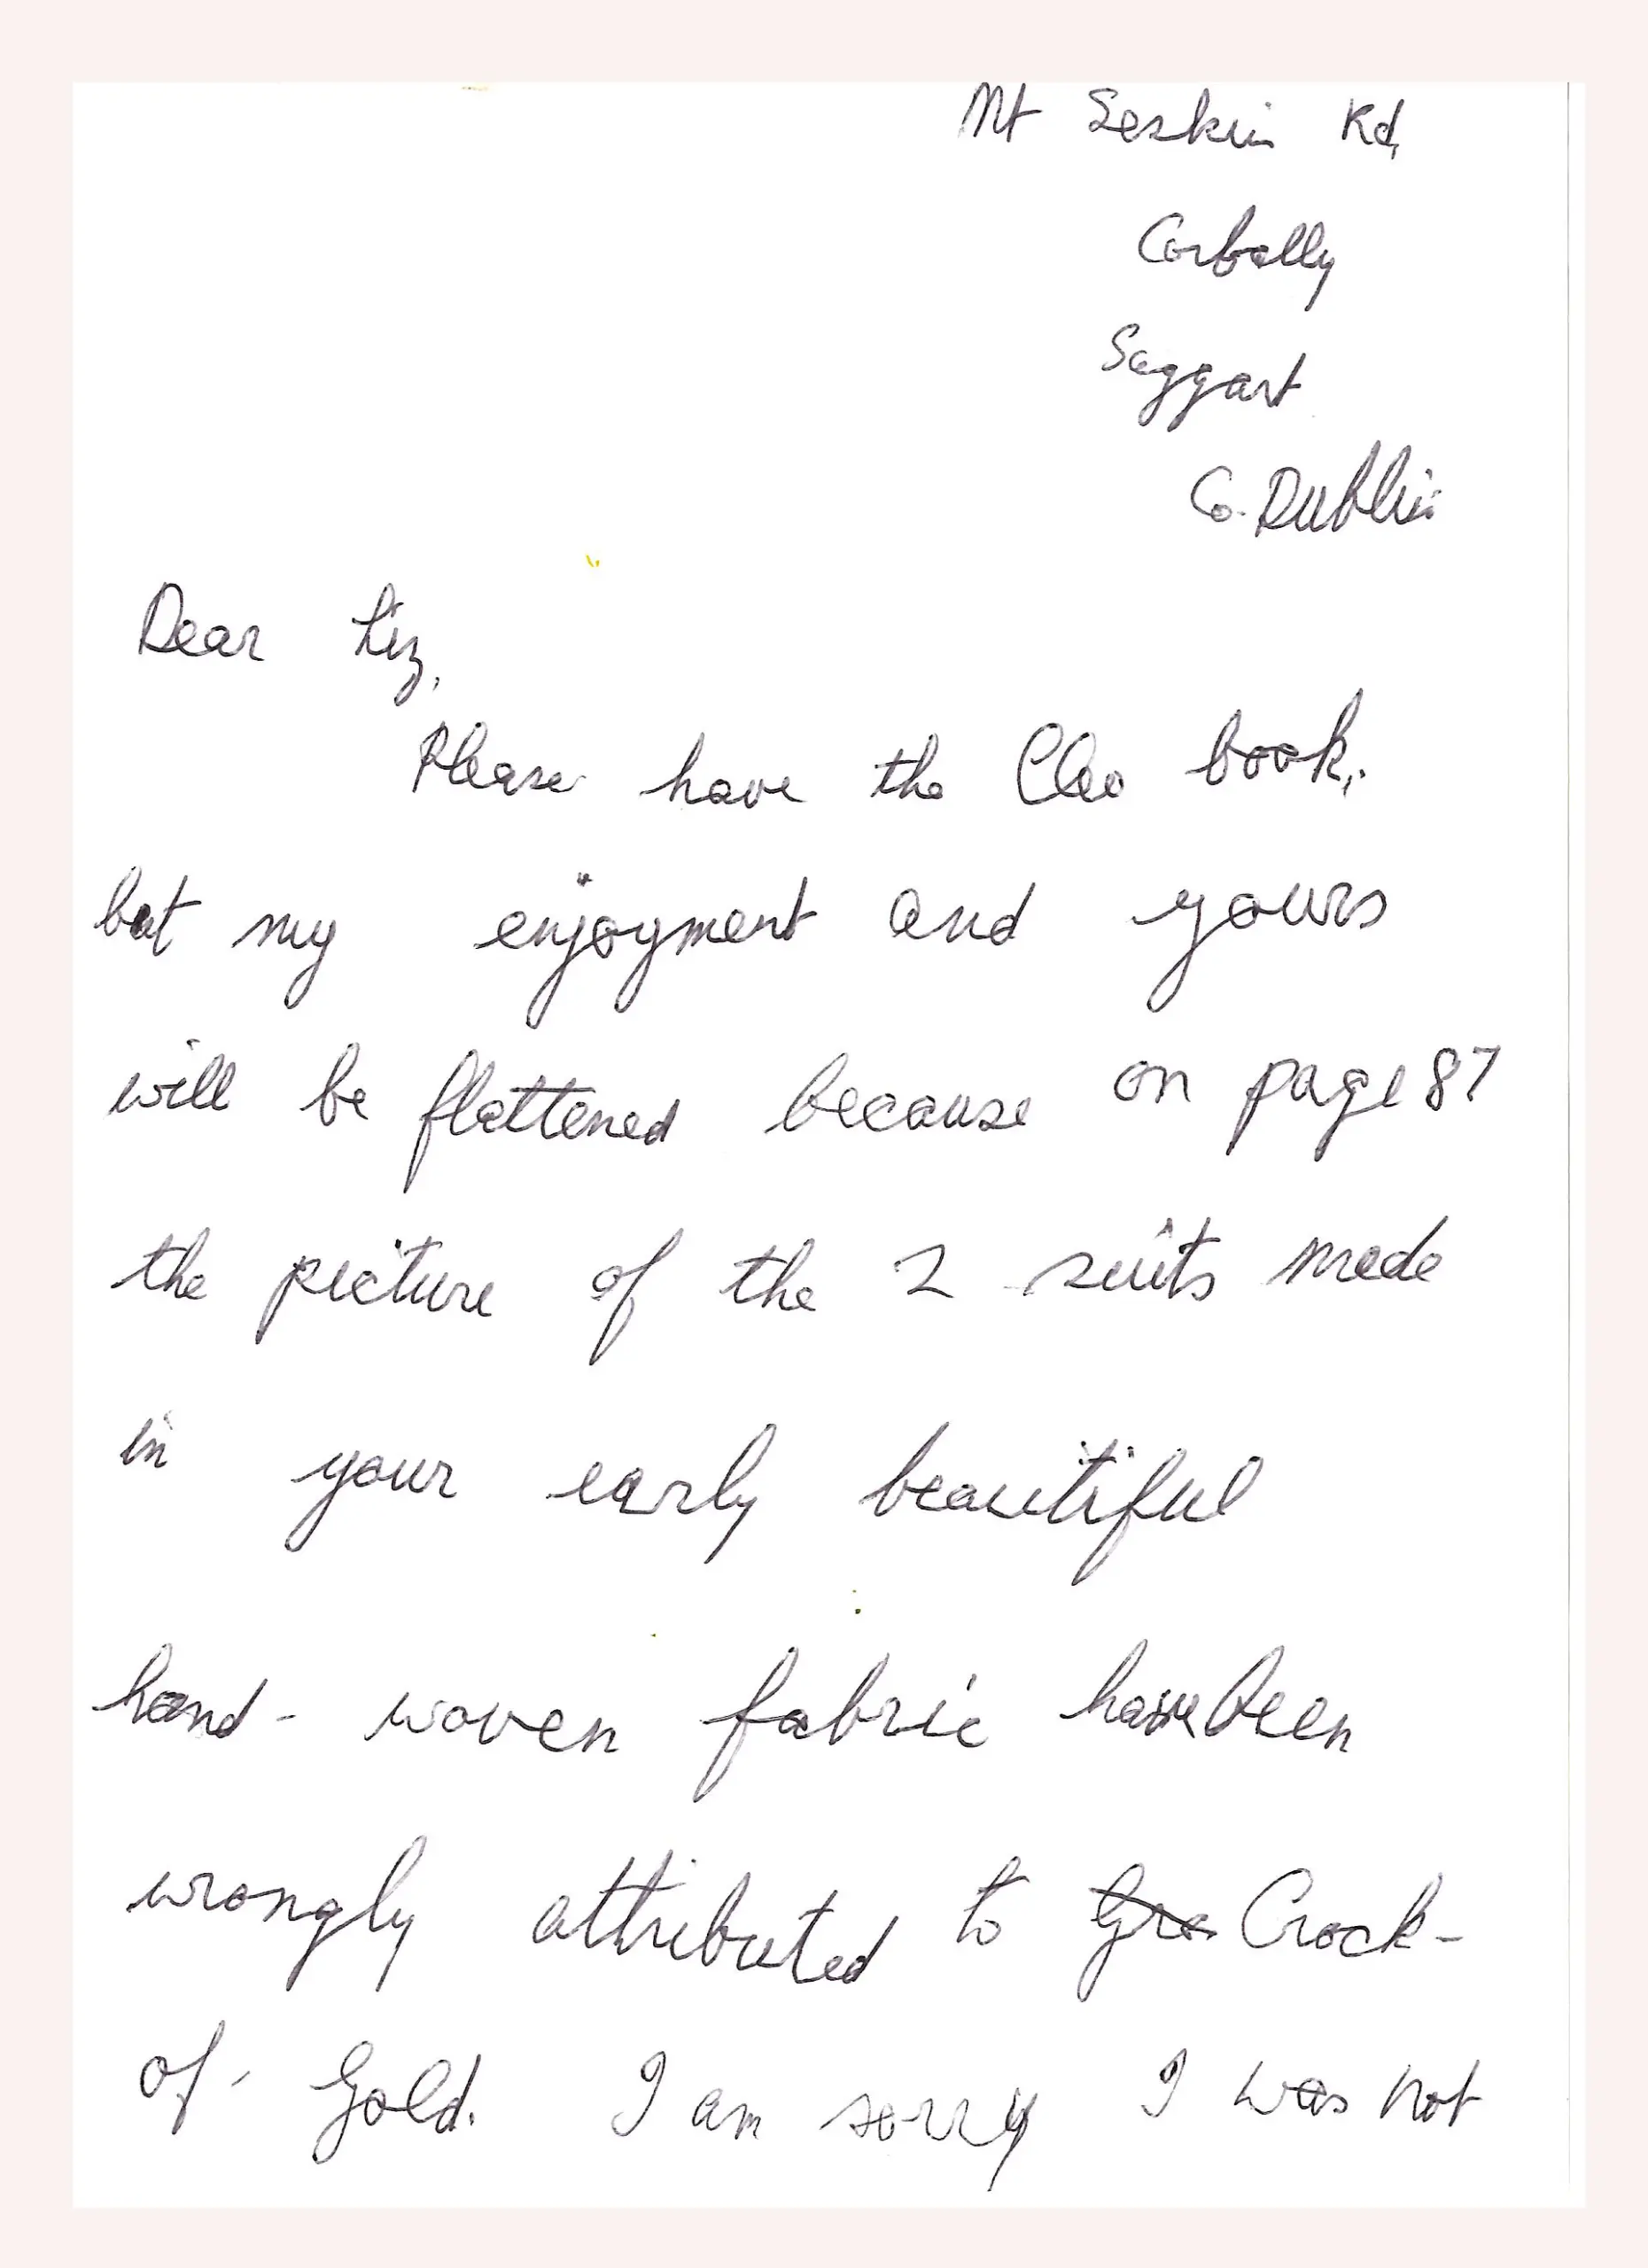 Mt Seskin Rd,
Corbally
Saggart
Co. Dublin
Dear Liz,
Please have the Cleo book,
but my enjoyment and yours
will be flattened because on page 87
the picture of the 2 suits made
in your early beautiful
hand-woven fabric have been
wrongly attributed to Crock-
of-Gold. I am sorry I was not